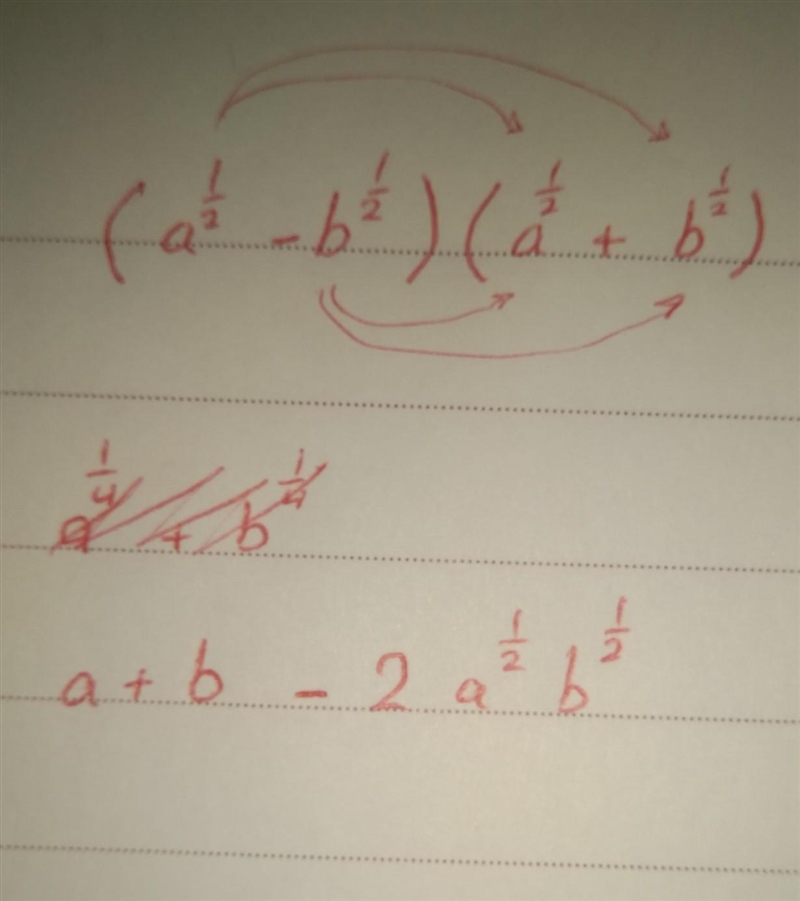 (a^{1/2} - b^{1/2})(a^{1/2} + b^{1/2})
a^{1/4} + b^{1/4}
a + b - 2 a^{1/2} b^{1/2}